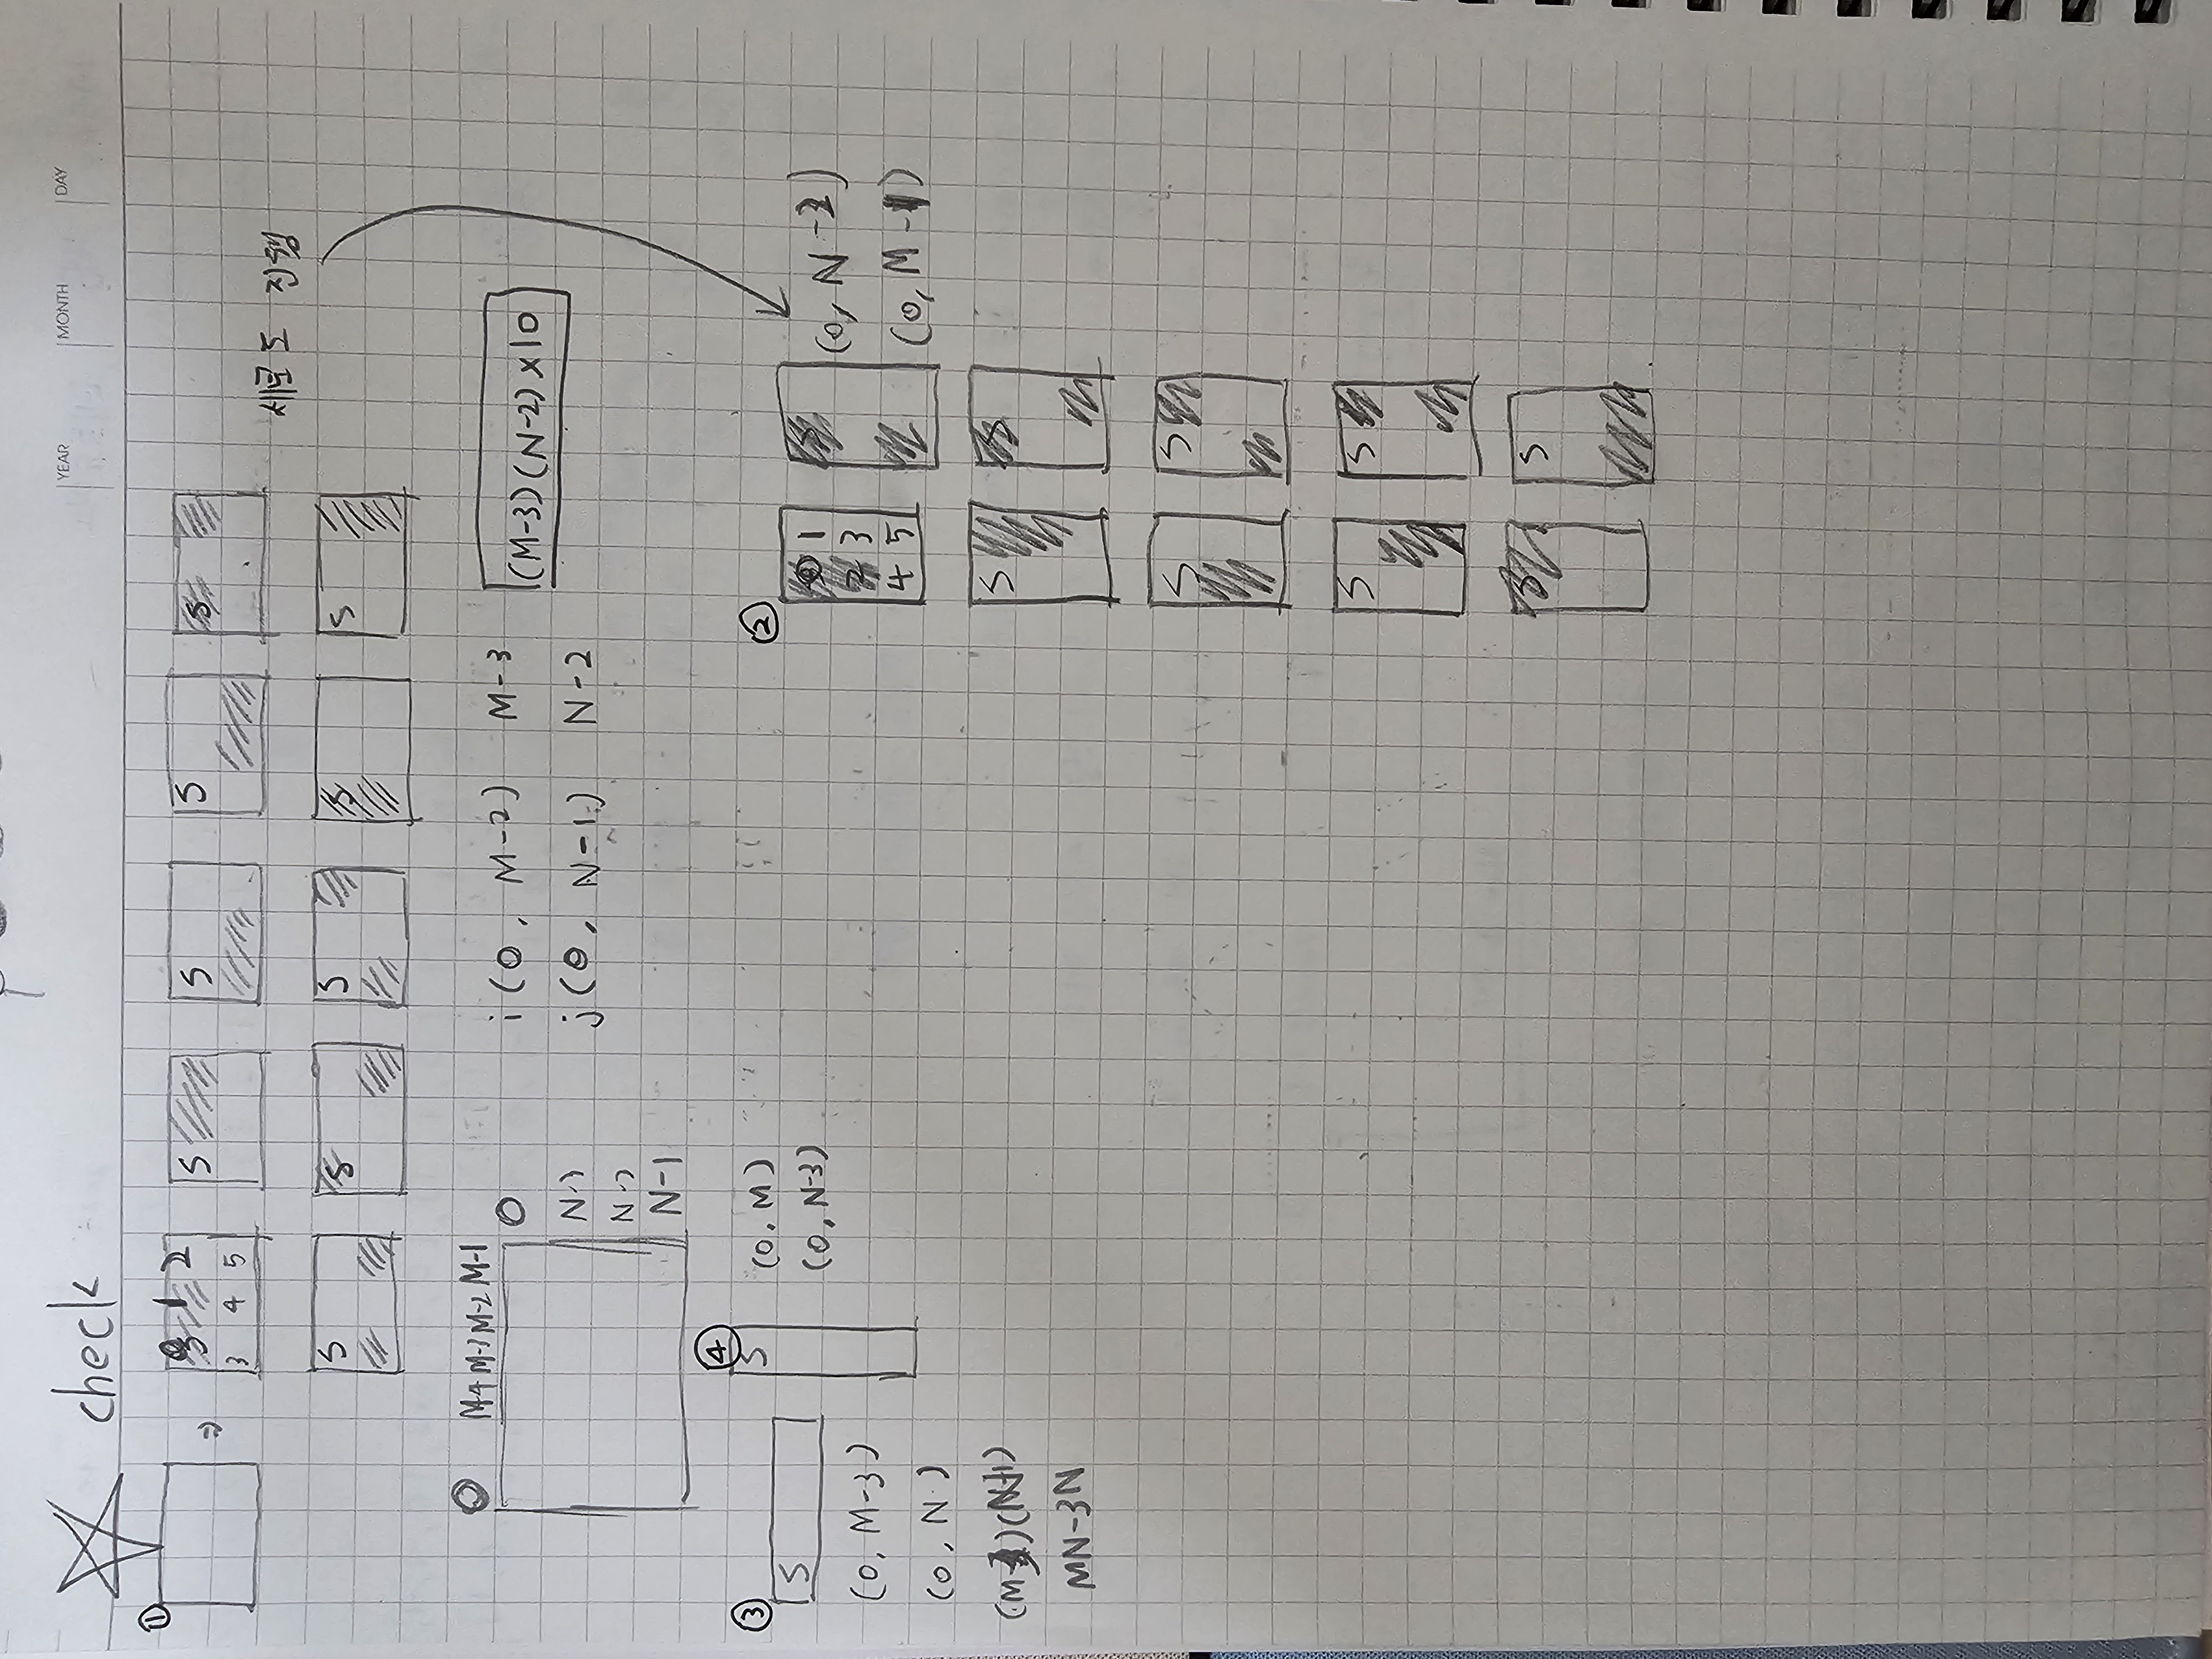 YEAR MONTH DAY
check
①
0 1 2
3 4 5
S
S
S
S
S
S
S
S
S
세로도 진행
0 M-4 M-3 M-2 M-1
0
N-3
N-2
N-1
i (0, M-2) M-3
j (0, N-1) N-2
(M-3)(N-2)×10
③
S
(0, M-3)
(0, N)
(M-3)(N-1)
MN-3N
④
S
(0, M)
(0, N-3)
②
0 1
2 3
4 5
S
(0, N-2)
(0, M-1)
S S
S S
S S
S S